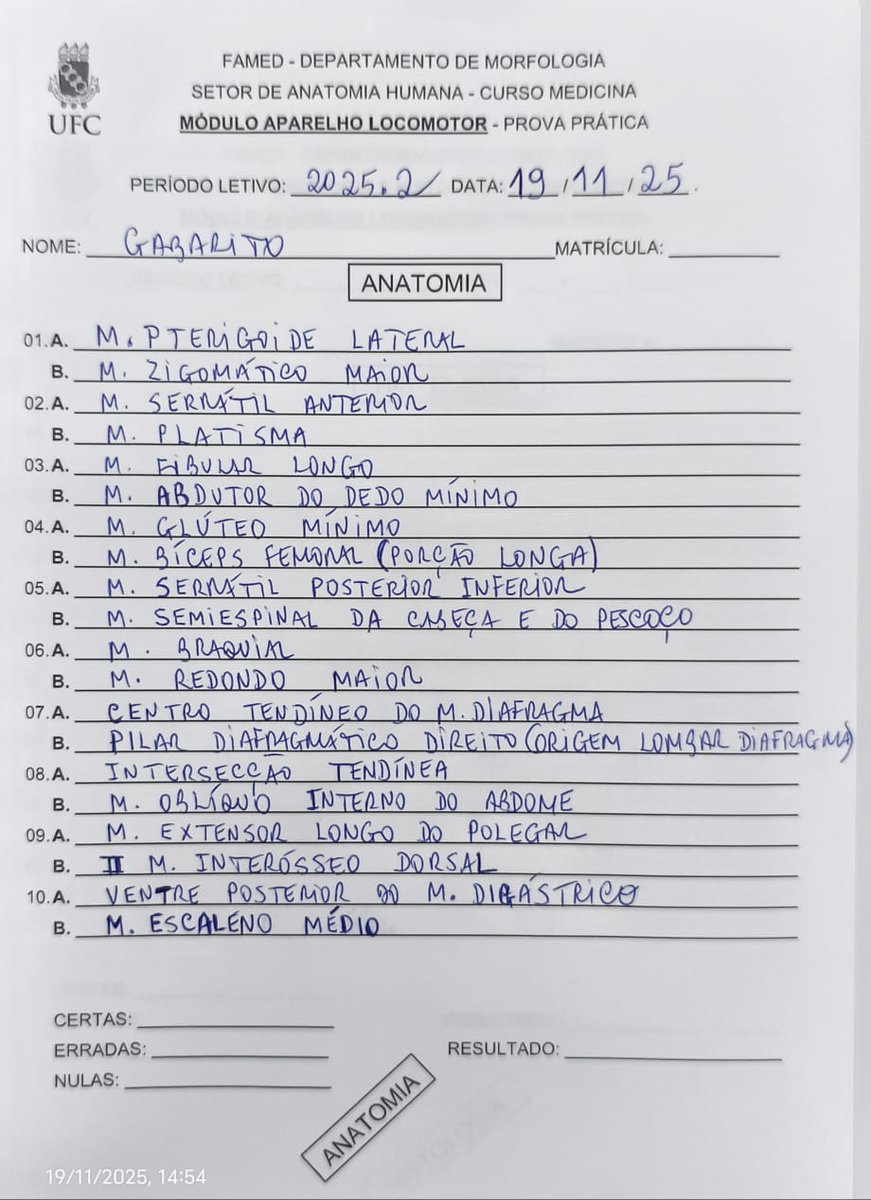 FAMED - DEPARTAMENTO DE MORFOLOGIA
SETOR DE ANATOMIA HUMANA - CURSO MEDICINA
UFC
MÓDULO APARELHO LOCOMOTOR - PROVA PRÁTICA
PERÍODO LETIVO: 2025.2 DATA: 19/11/25.
NOME: GABARITO MATRÍCULA:
ANATOMIA
01.A. M. PTERIGOIDE LATERAL
B. M. ZIGOMÁTICO MAIOR
02.A. M. SERRÁTIL ANTERIOR
B. M. PLATISMA
03.A. M. FIBULAR LONGO
B. M. ABDUTOR DO DEDO MÍNIMO
04.A. M. GLÚTEO MÍNIMO
B. M. BÍCEPS FEMORAL (PORÇÃO LONGA)
05.A. M. SERRÁTIL POSTERIOR INFERIOR
B. M. SEMIESPINAL DA CABEÇA E DO PESCOÇO
06.A. M. BRAQUIAL
B. M. REDONDO MAIOR
07.A. CENTRO TENDÍNEO DO M. DIAFRAGMA
B. PILAR DIAFRAGMÁTICO DIREITO (ORIGEM LOMBAR DIAFRAGMA)
08.A. INTERSECÇÃO TENDÍNEA
B. M. OBLÍQUO INTERNO DO ABDOME
09.A. M. EXTENSOR LONGO DO POLEGAR
B. II M. INTERÓSSEO DORSAL
10.A. VENTRE POSTERIOR DO M. DIGÁSTRICO
B. M. ESCALENO MÉDIO
CERTAS:
ERRADAS: RESULTADO:
NULAS:
ANATOMIA
19/11/2025, 14:54